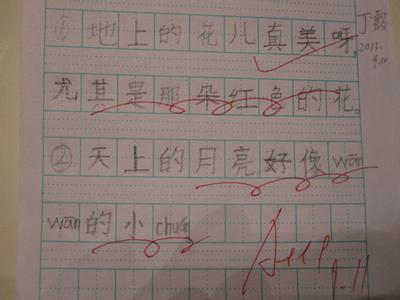 ① 地上的花儿真美呀，
丁霞
2013.
9.10
尤其是那朵红色的花。
② 天上的月亮好像wān
wān的小chuán。
9.11